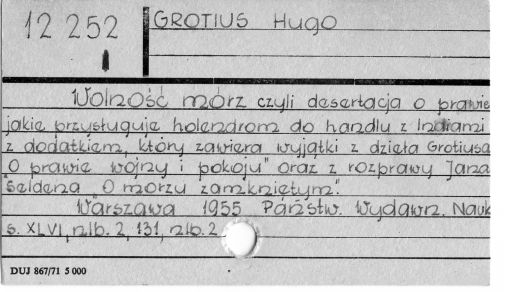 12 252
GROTIUS Hugo
Wolność mórz czyli desertacja o prawie
jakie przysługuje holendrom do handlu z Indiami
z dodatkiem, który zawiera wyjątki z dzieła Grotiusa
"O prawie wojny i pokoju" oraz z rozprawy Jana
Seldena "O morzu zamkniętym".
Warszawa 1955 Państw. Wydawn. Nauk
s. XLVI, nlb. 2, 131, nlb. 2
DUJ 867/71 5 000